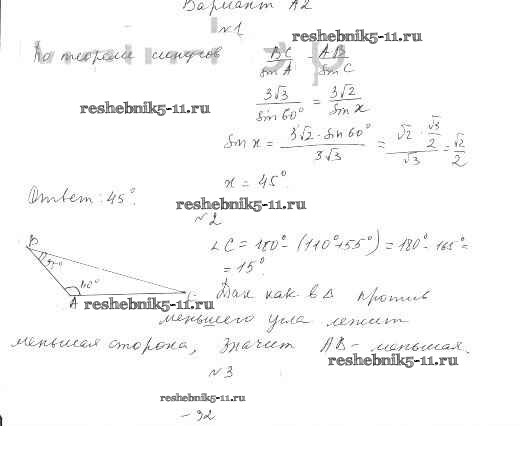 Вариант А2
№1
reshebnik5-11.ru
По теореме синусов BC/sin A = AB/sin C
reshebnik5-11.ru
3√3/sin 60° = 3√2/sin x
sin x = 3√2 · sin 60°/3√3 = √2 · √3/2/√3 = √2/2
x = 45°.
Ответ: 45°.
reshebnik5-11.ru
№2
∠C = 180° - (110° + 55°) = 180° - 165° =
= 15°.
B
A
reshebnik5-11.ru
Так как в Δ против
меньшего угла лежит
меньшая сторона, значит AB - меньшая.
reshebnik5-11.ru
№3
reshebnik5-11.ru
- 92